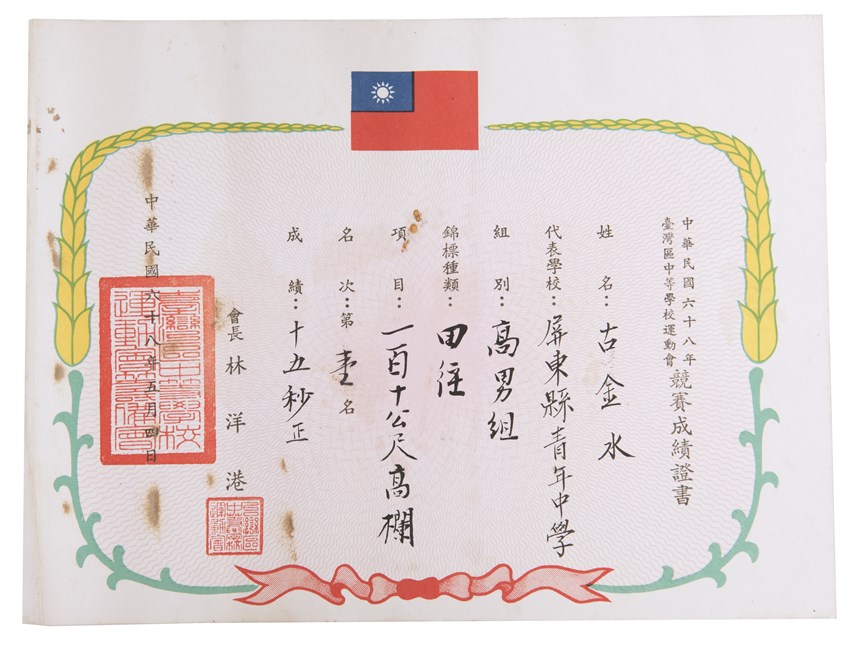 中華民國六十八年
臺灣區中等學校運動會
競賽成績證書
姓名：古金水
代表學校：屏東縣青年中學
組別：高男組
錦標種類：田徑
項目：一百十公尺高欄
名次：第壹名
成績：十五秒正
會長 林洋港
中華民國六十八年五月四日